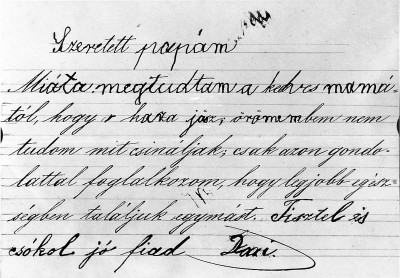 Szeretett papám
Miáta megtudtam a kedves mamá-
tól, hogy haza jösz, örömembem nem
tudom mit csináljak; csak azon gondo-
lattal foglalkozom, hogy legjobb egész-
ségben találjuk egymást. Tisztel és
csókol jó fiad